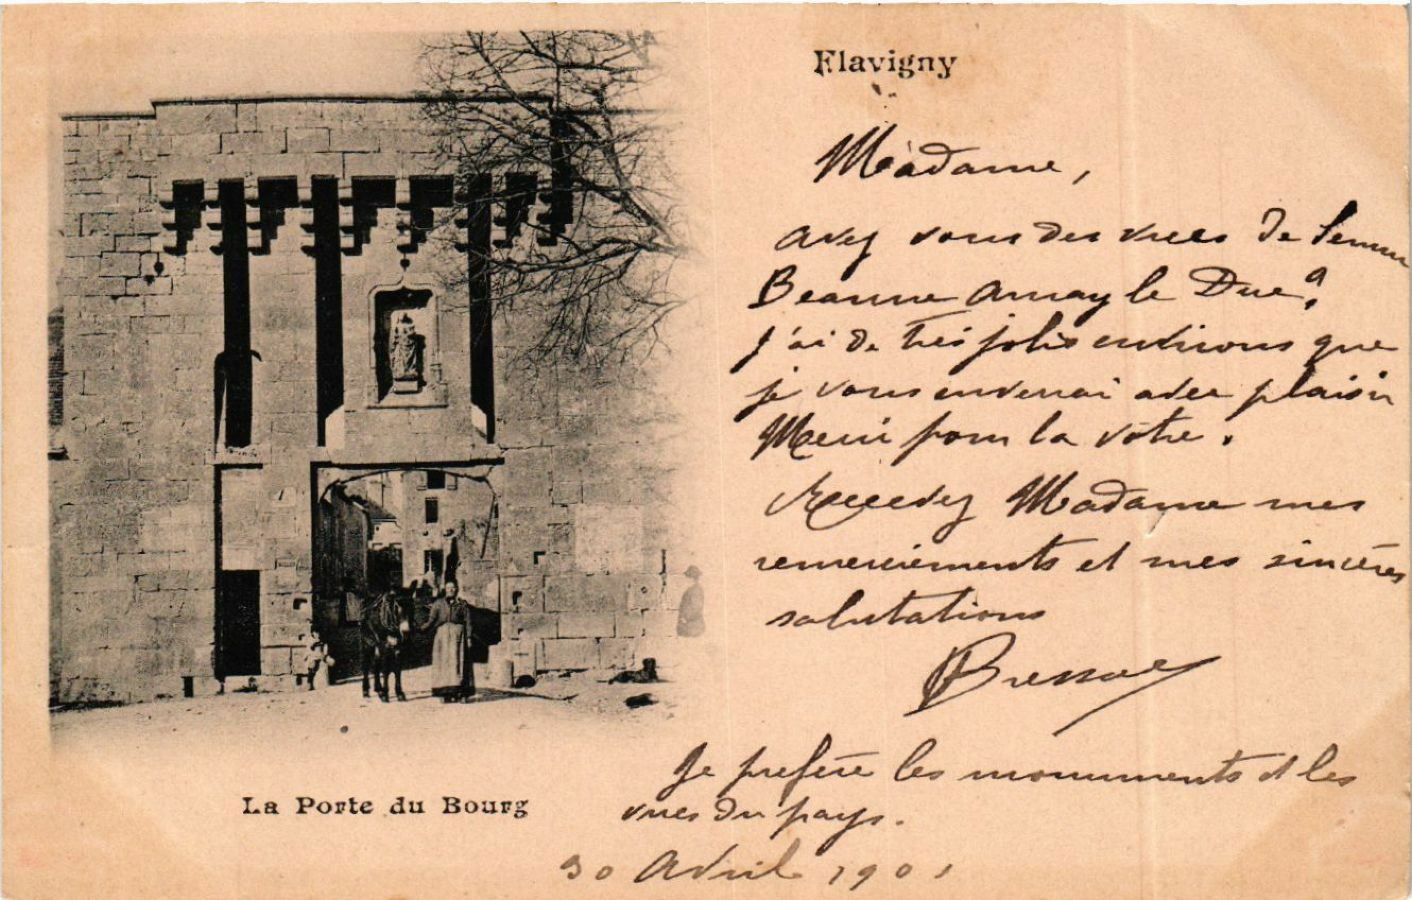 Flavigny
Madame,
avez vous des vues de Semur
Beaune Arnay le Duc ?
J'ai de très jolis environs que
je vous enverrai avec plaisir
Merci pour la votre.
Recevez Madame mes
remerciements et mes sincères
salutations
La Porte du Bourg
Je prefère les monuments et les
vues du pays.
30 Avril 1901